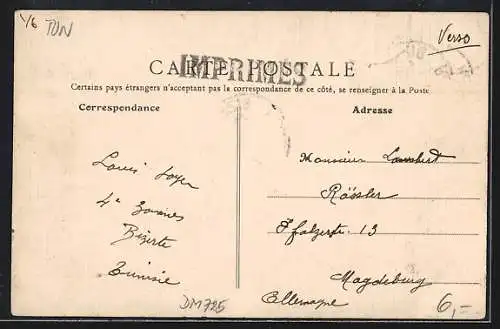 1/6 TUN
Verso
CARTE POSTALE
IMPRIMÉS
Certains pays étrangers n'acceptant pas la correspondance de ce côté, se renseigner à la Poste
Correspondance
Adresse
Louis
4e Zouaves
Bizerte
Tunisie
Monsieur Lambert
Rössler
Pfalzerstr. 13
Magdeburg
Allemagne
DM725
6,-